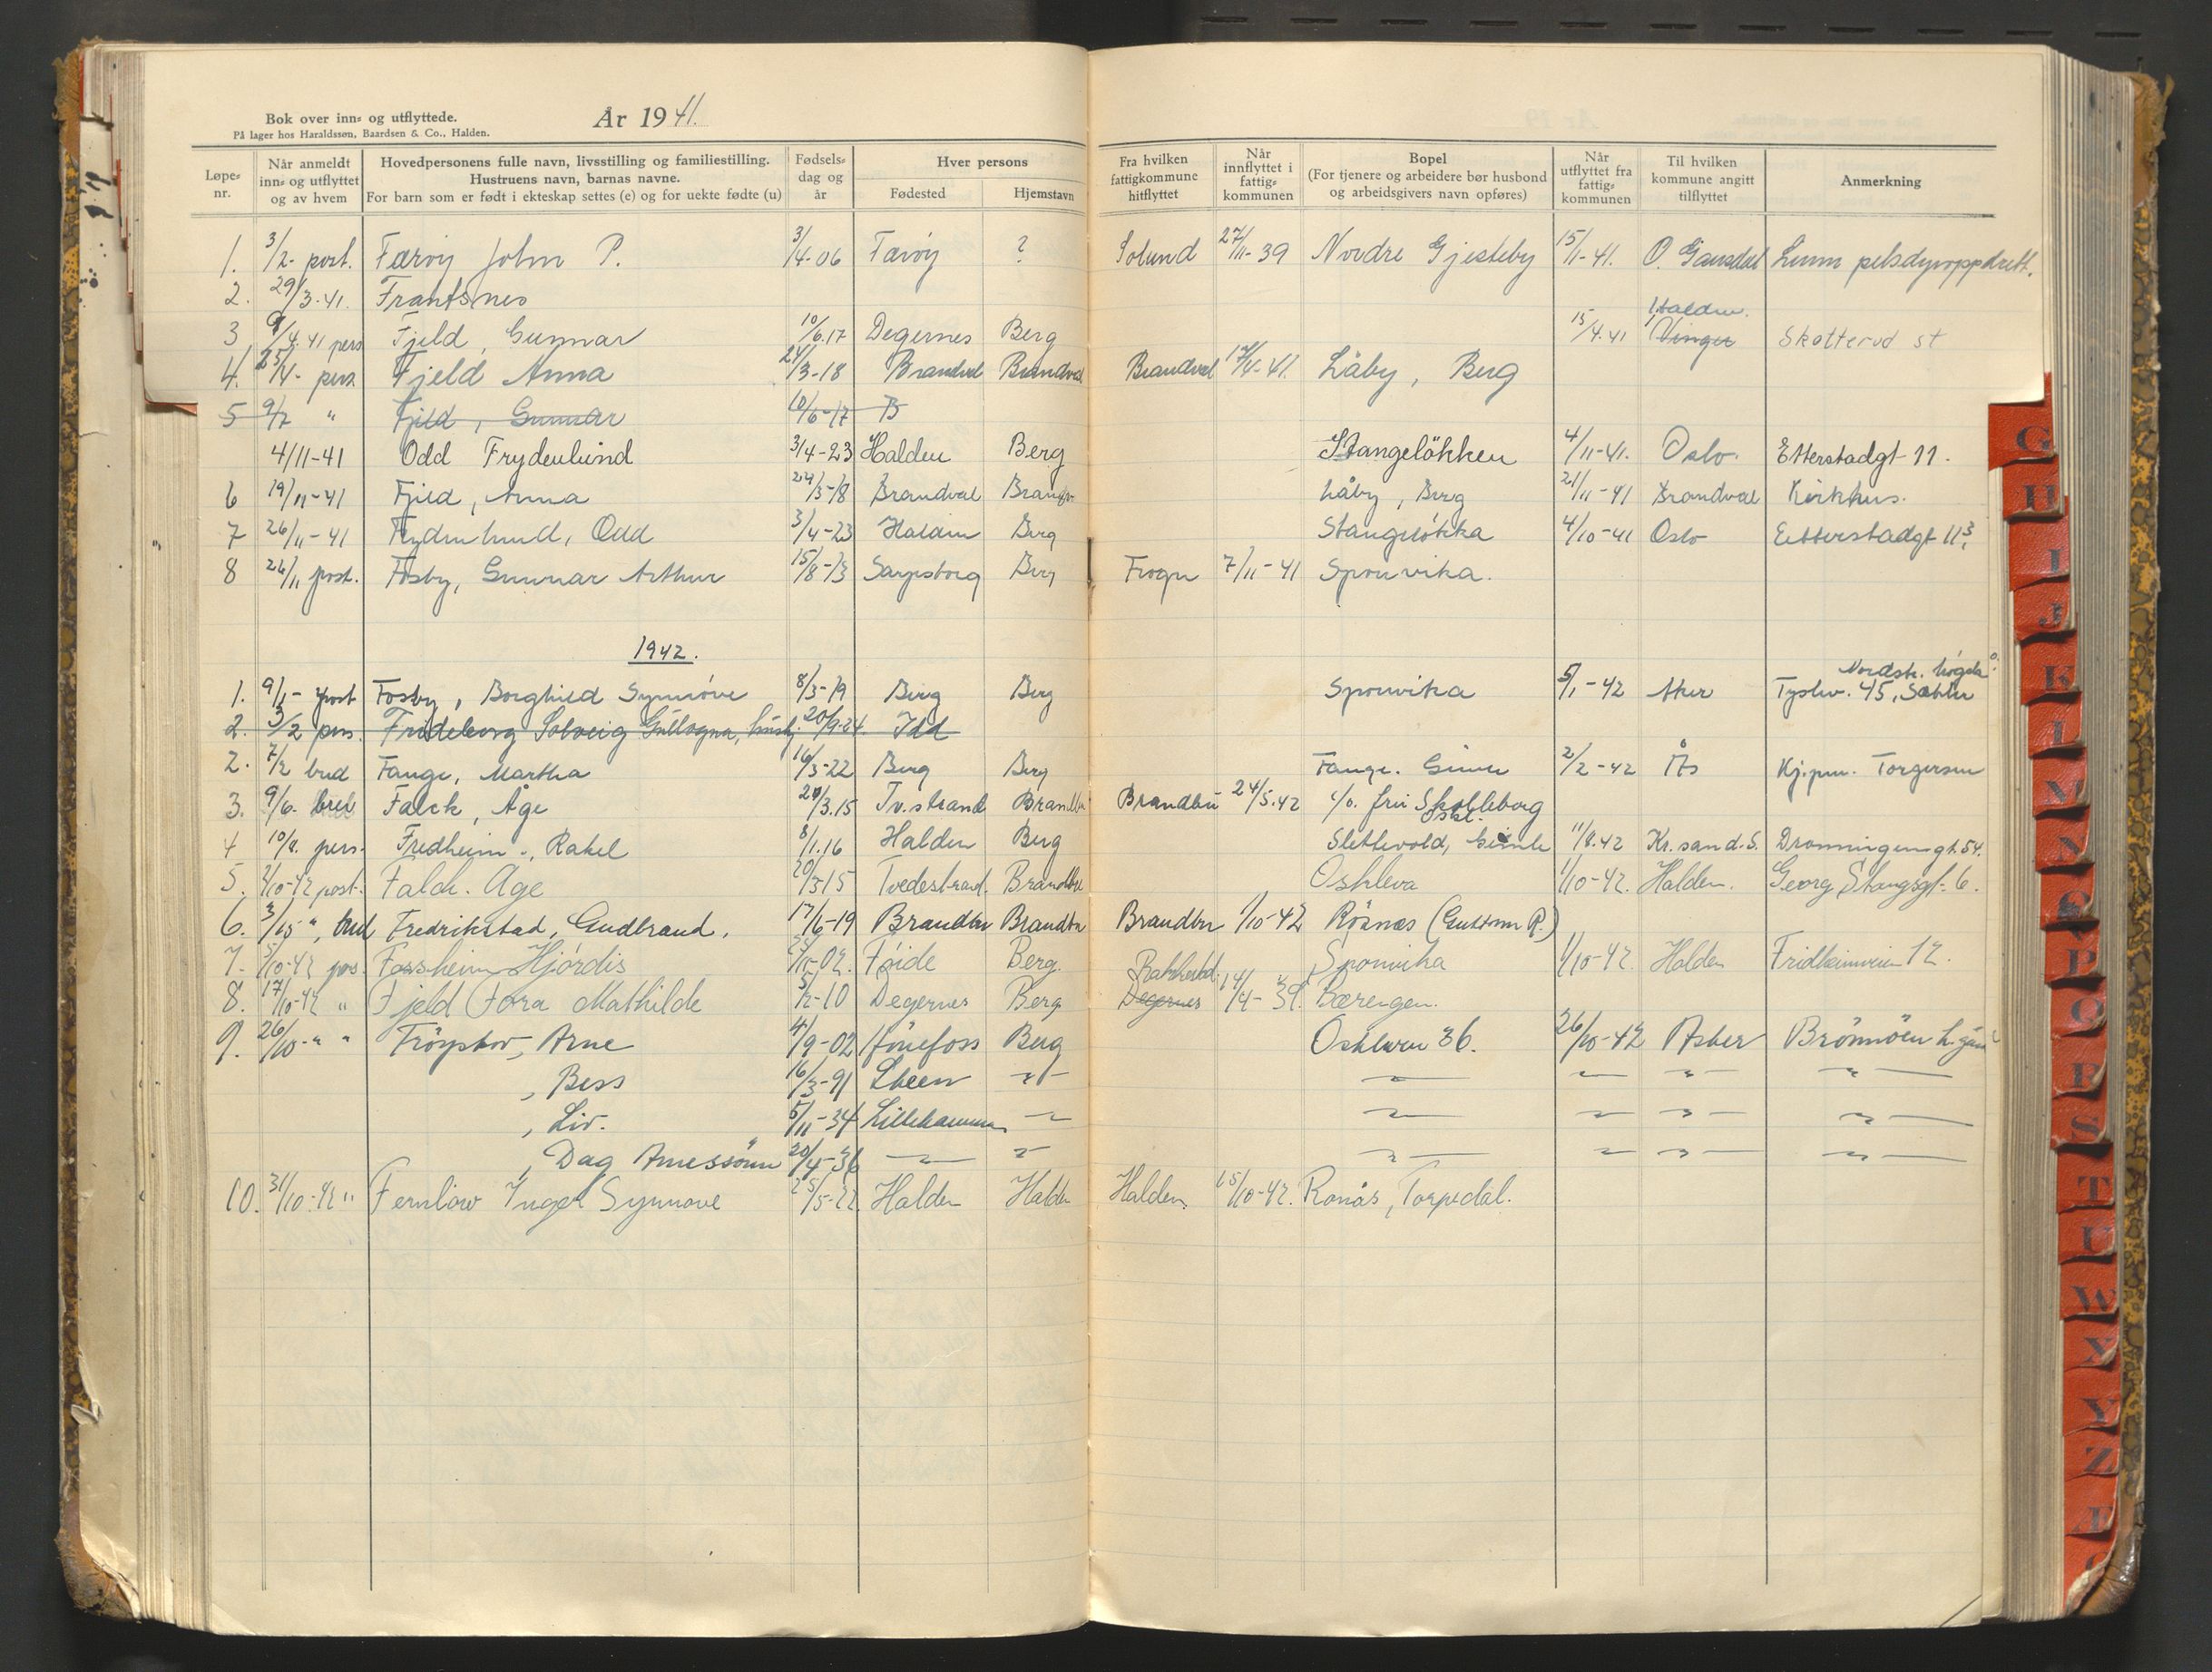 Bok over inn- og utflyttede.
På lager hos Haraldssøn, Baardsen & Co., Halden.
År 1941.
Løpe-nr. Når anmeldt inn- og utflyttet og av hvem Hovedpersonens fulle navn, livsstilling og familiestilling. Hustruens navn, barnas navne. For barn som er født i ekteskap settes (e) og for uekte fødte (u) Fødsels-dag og år Hver persons Fødested Hjemstavn Fra hvilken fattigkommune hitflyttet Når innflyttet i fattig-kommunen Bopel (For tjenere og arbeidere bør husbond og arbeidsgivers navn opføres) Når utflyttet fra fattig-kommunen Til hvilken kommune angitt tilflyttet Anmerkning
1. 3/2- post. Færøy John P. 3/4-06 Færøy ? Solund 27/11-39 Nordre Gjesteby 15/1-41. O. Gausdal Lunm pelsdyroppdrett.
2. 29/3-41. Frantsnes
3 9/4.41 pers Fjeld, Gunnar 10/6.17 Degernes Berg 15/4.41 Halden. Vinger Skotterud st
4. 25/4- pers. Fjeld Anna 24/3-18 Brandval Brandval Brandval 17/4-41. Låby, Berg
5 9/7 " Fjeld, Gunnar 10/6-17 B
4/11-41 Odd Frydenlund 3/4-23 Halden Berg Stangeløkken 4/11-41. Oslo. Etterstadgt 11.
6 19/11-41 Fjeld, Anna 24/3-18 Brandval Brandv Låby, Berg 21/11-41 Brandval Kirkhus.
7 26/11-41 Frydenlund, Odd 3/4-23 Halden Berg Stangeløkka 4/10-41 Oslo Etterstadgt 11³.
8 26/11 post. Fosby, Gunnar Arthur 15/8-13 Sarpsborg Berg Frogn 7/11-41 Sponvika.
1942.
1. 9/1- post Fosby, Borghild Synnøve 8/3-19 Berg Berg Sponvika 5/1-42 Aker Nordstr. høgda Tyslev. 45, Sæter
2. 3/2 pers. Frideborg Solveig Gullogna, hush. 20/9-24. Idd
2. 7/2 bud Fange, Martha 16/3-22 Berg Berg Fange. Gimle 2/2-42 Ås Kj.pm. Torgersen
3. 9/6. brev Falck, Åge 20/3.15 Tv.strand Brandbu Brandbu 24/5.42 c/o. fru Skolleborg Oskl.
4 10/8. pers. Fredheim, Rakel 8/1.16 Halden Berg Slettevold, Gimle 11/8.42 Kr.sand.S. Dronningensgt. 54.
5. 2/10-42 post. Falck. Åge 20/3-15 Tvedestrand. Brandbu Oskleva 1/10-42. Halden. Georg Stangsgt. 6.
6. 3/10 ", bud Fredrikstad, Gudbrand. 17/6-19 Brandbu Brandbu Brandbu 1/10-42 Røsnæs (Guttorm R.)
7. 5/10-42 pers. Fossheim Hjørdis 25/10-02. Førde Berg. Sponvika 1/10-42. Halden Fridheimveien 12.
8. 17/10-42 " Fjeld Tora Mathilde 5/2-10 Degernes Berg Rakkestad. Degernes 14/4-39. Bærengen.
9. 26/10-" " Frøystov, Arne 4/9-02 Hønefoss Berg Oskleven 36. 26/10-42 Asker Brønnøen h.gård
, Bess 16/3-91 Skeen -"- -"- -"- -"- -"-
, Liv. 5/11-34 Lillehammer -"- -"- -"- -"- -"-
, Dag Arnessønn 20/4-36 -"- -"- -"- -"- -"- -"-
10. 31/10-42 " Fernlöw Inger Synnøve 25/5-22. Halden Halden Halden. 15/10-42. Ronås, Torpedal.
G
H
I
J
K
L
M
N
O
P
Q
R
S
T
U
W
X
Y
Z
Æ